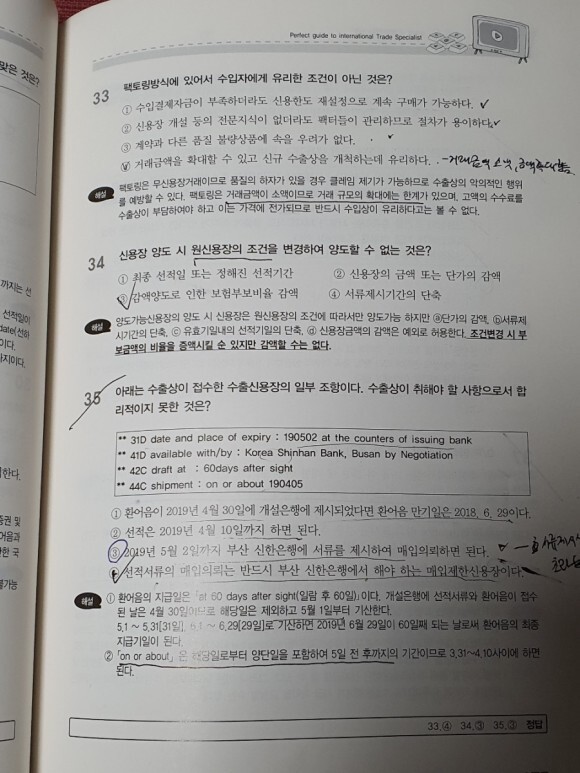 맞은 것은?
Perfect guide to International Trade Specialist
33 팩토링방식에 있어서 수입자에게 유리한 조건이 아닌 것은?
① 수입결제자금이 부족하더라도 신용한도 재설정으로 계속 구매가 가능하다.
② 신용장 개설 등의 전문지식이 없더라도 팩터들이 관리하므로 절차가 용이하다.
③ 계약과 다른 품질 불량상품에 속을 우려가 없다.
④ 거래금액을 확대할 수 있고 신규 수출상을 개척하는데 유리하다. - 거래금액 소액,
해설 팩토링은 무신용장거래이므로 품질의 하자가 있을 경우 클레임 제기가 가능하므로 수출상의 악의적인 행위
를 예방할 수 있다. 팩토링은 거래금액이 소액이므로 거래 규모의 확대에는 한계가 있으며, 고액의 수수료를
수출상이 부담하여야 하고 이는 가격에 전가되므로 반드시 수입상이 유리하다고는 볼 수 없다.
34 신용장 양도 시 원신용장의 조건을 변경하여 양도할 수 없는 것은?
① 최종 선적일 또는 정해진 선적기간 ② 신용장의 금액 또는 단가의 감액
③ 감액양도로 인한 보험부보비율 감액 ④ 서류제시기간의 단축
해설 양도가능신용장의 양도 시 신용장은 원신용장의 조건에 따라서만 양도가능 하지만 ⓐ단가의 감액, ⓑ서류제
시기간의 단축, ⓒ 유효기일내의 선적기일의 단축, ⓓ 신용장금액의 감액은 예외로 허용한다. 조건변경 시 부
보금액의 비율을 증액시킬 순 있지만 감액할 수는 없다.
35 아래는 수출상이 접수한 수출신용장의 일부 조항이다. 수출상이 취해야 할 사항으로서 합
리적이지 못한 것은?
** 31D date and place of expiry : 190502 at the counters of issuing bank
** 41D available with/by : Korea Shinhan Bank, Busan by Negotiation
** 42C draft at : 60days after sight
** 44C shipment : on or about 190405
① 환어음이 2019년 4월 30일에 개설은행에 제시되었다면 환어음 만기일은 2018. 6. 29이다.
② 선적은 2019년 4월 10일까지 하면 된다.
③ 2019년 5월 2일까지 부산 신한은행에 서류를 제시하여 매입의뢰하면 된다.
④ 선적서류의 매입의뢰는 반드시 부산 신한은행에서 해야 하는 매입제한신용장이다.
해설 ① 환어음의 지급일은 「at 60 days after sight(일람 후 60일)」이다. 개설은행에 선적서류와 환어음이 접수
된 날은 4월 30일이므로 해당일은 제외하고 5월 1일부터 기산한다.
5.1 ~ 5.31[31일], 6.1 ~ 6.29[29일]로 기산하면 2019년 6월 29일이 60일째 되는 날로써 환어음의 최종
지급기일이 된다.
② 「on or about」은 해당일로부터 양단일을 포함하여 5일 전 후까지의 기간이므로 3.31~4.10사이에 하면
된다.
33.④ 34.③ 35.③ 정답